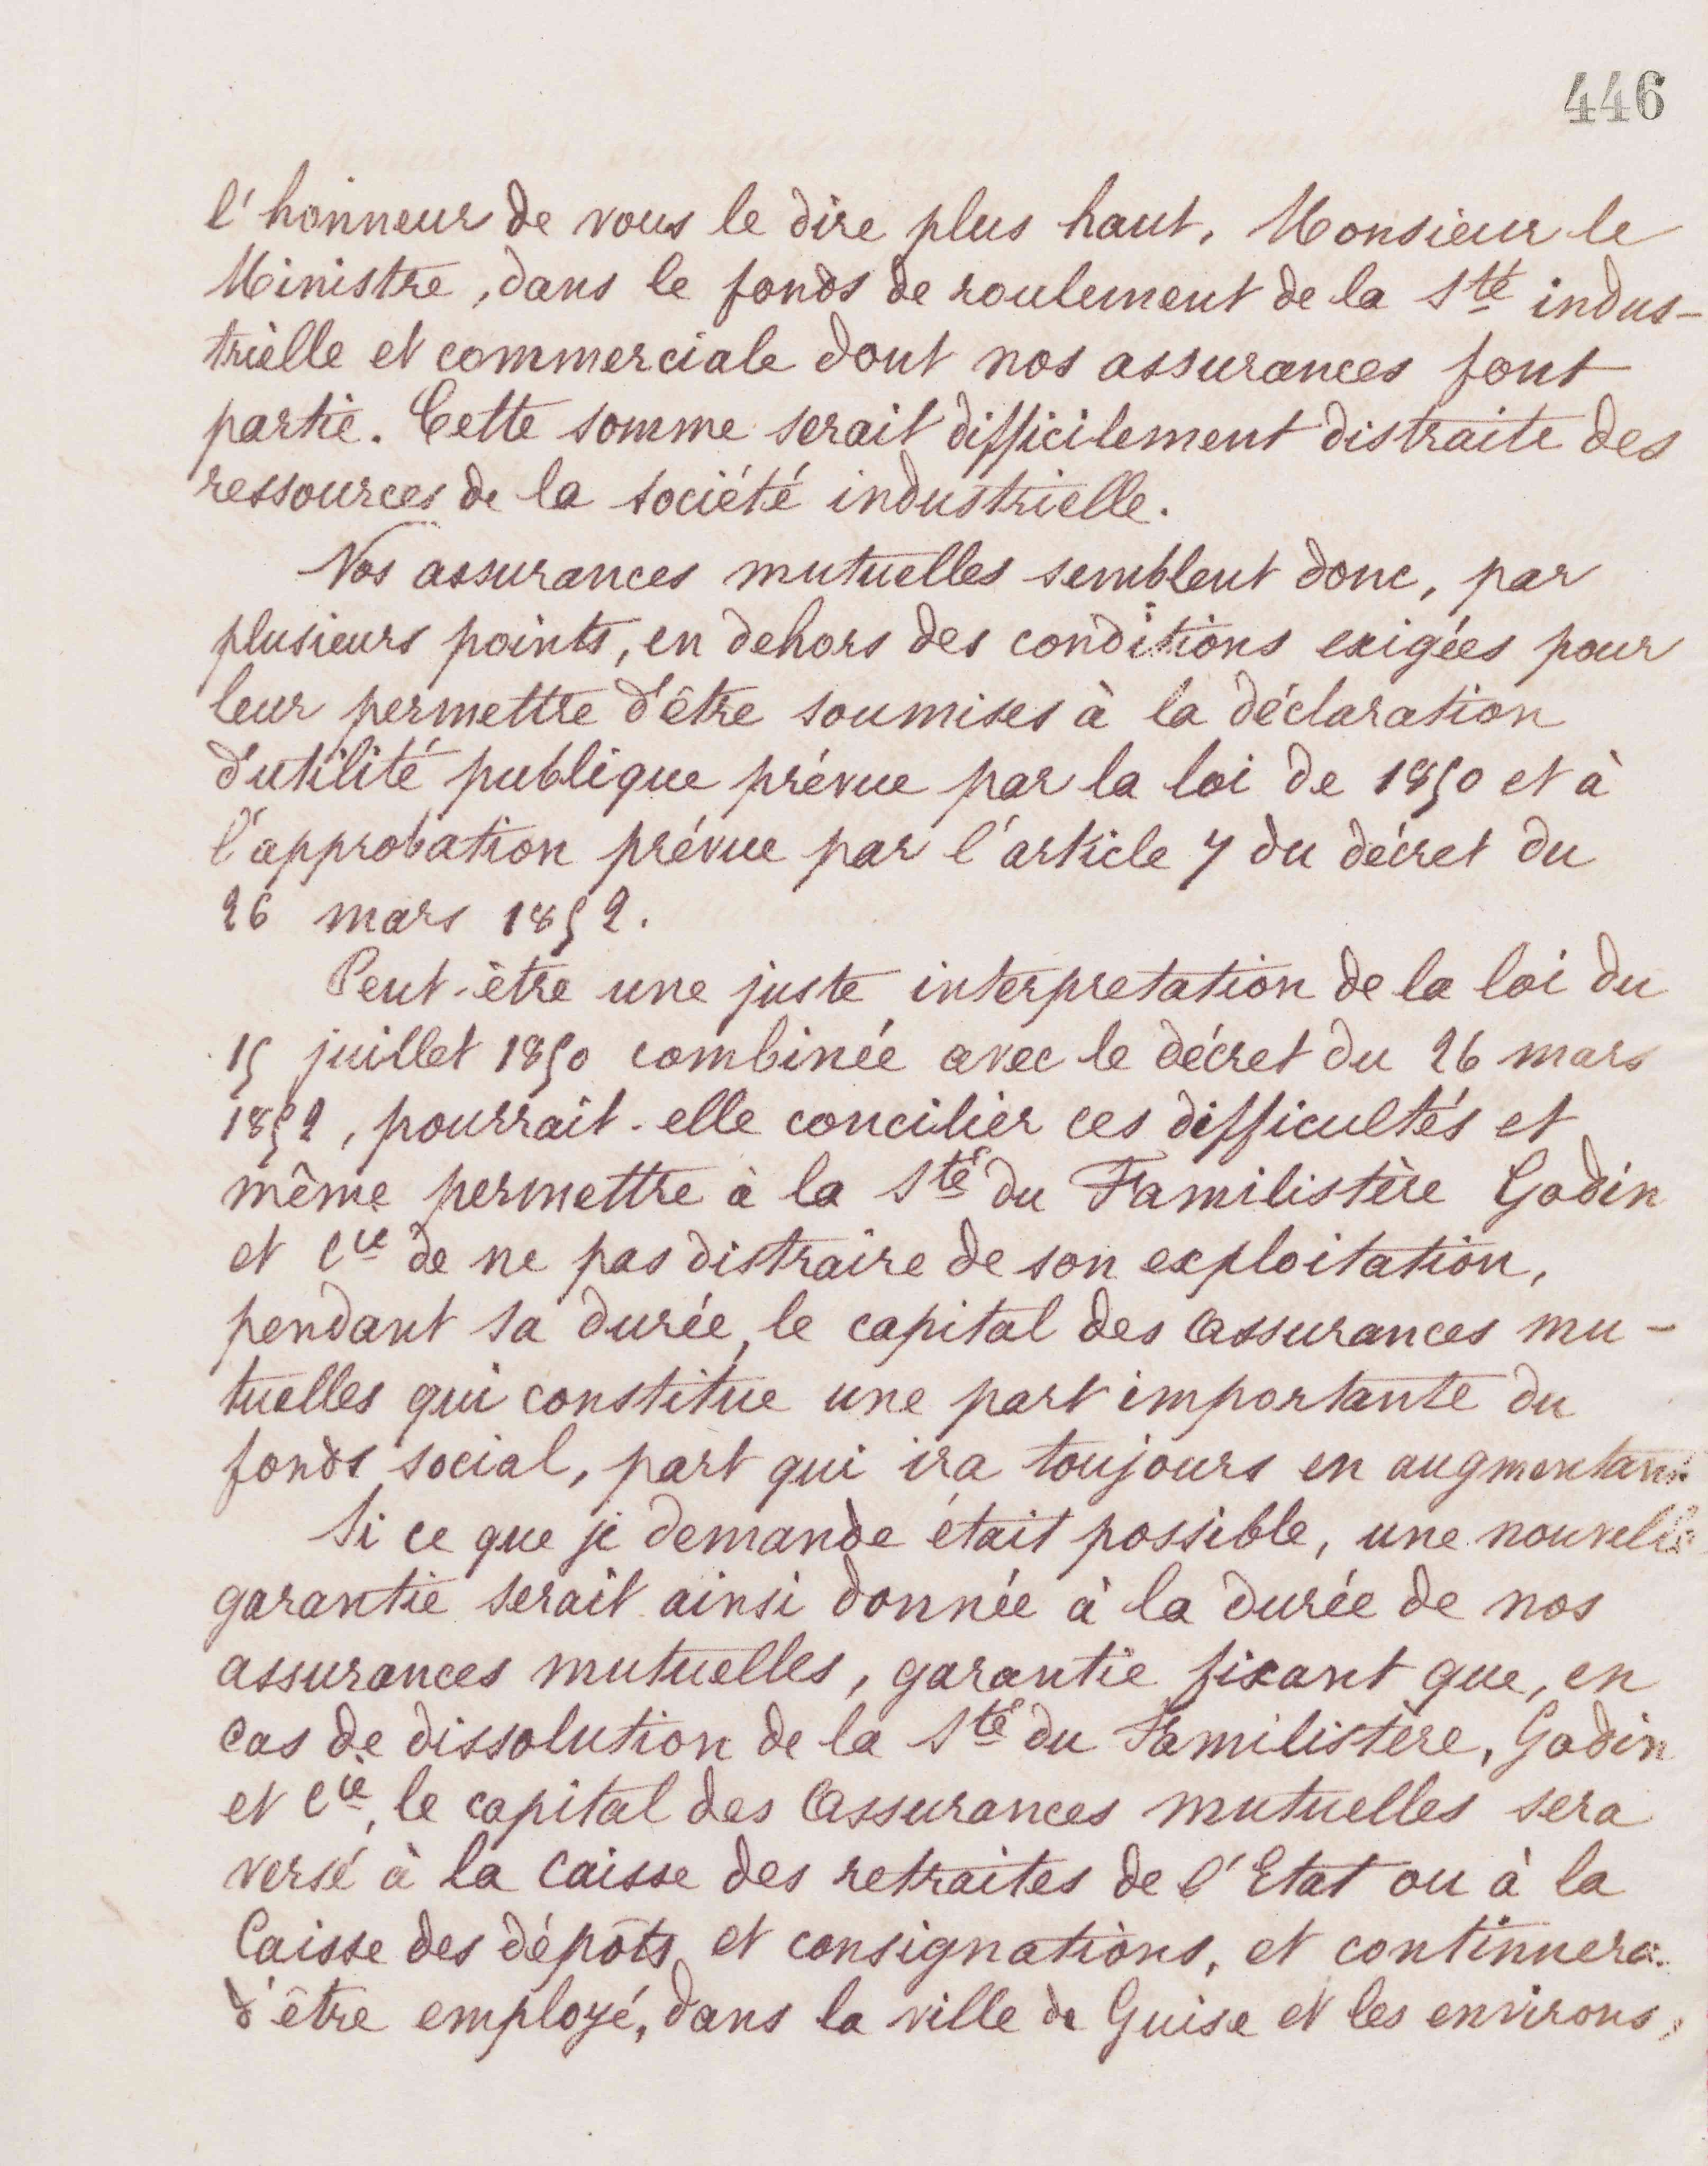 446
l'honneur de vous le dire plus haut, Monsieur le
Ministre, dans le fonds de roulement de la Sté indus-
trielle et commerciale dont nos assurances font
partie. Cette somme serait difficilement distraite des
ressources de la société industrielle.
Nos assurances mutuelles semblent donc, par
plusieurs points, en dehors des conditions exigées pour
leur permettre d'être soumises à la déclaration
d'utilité publique prévue par la loi de 1850 et à
l'approbation prévue par l'article 7 du décret du
26 mars 1852.
Peut-être une juste interpretation de la loi du
15 juillet 1850 combinée avec le décret du 26 mars
1852, pourrait-elle concilier ces difficultés et
même permettre à la Sté du Familistère Godin
et Cie de ne pas distraire de son exploitation,
pendant sa durée, le capital des Assurances mu-
tuelles qui constitue une part importante du
fonds social, part qui ira toujours en augmentant
Si ce que je demande était possible, une nouvelle
garantie serait ainsi donnée à la durée de nos
assurances mutuelles, garantie fixant que, en
cas de dissolution de la Sté du Familistère, Godin
et Cie, le capital des Assurances mutuelles sera
versé à la Caisse des retraites de l'Etat ou à la
Caisse des dépôts et consignations, et continuera
d'être employé, dans la ville de Guise et les environs,